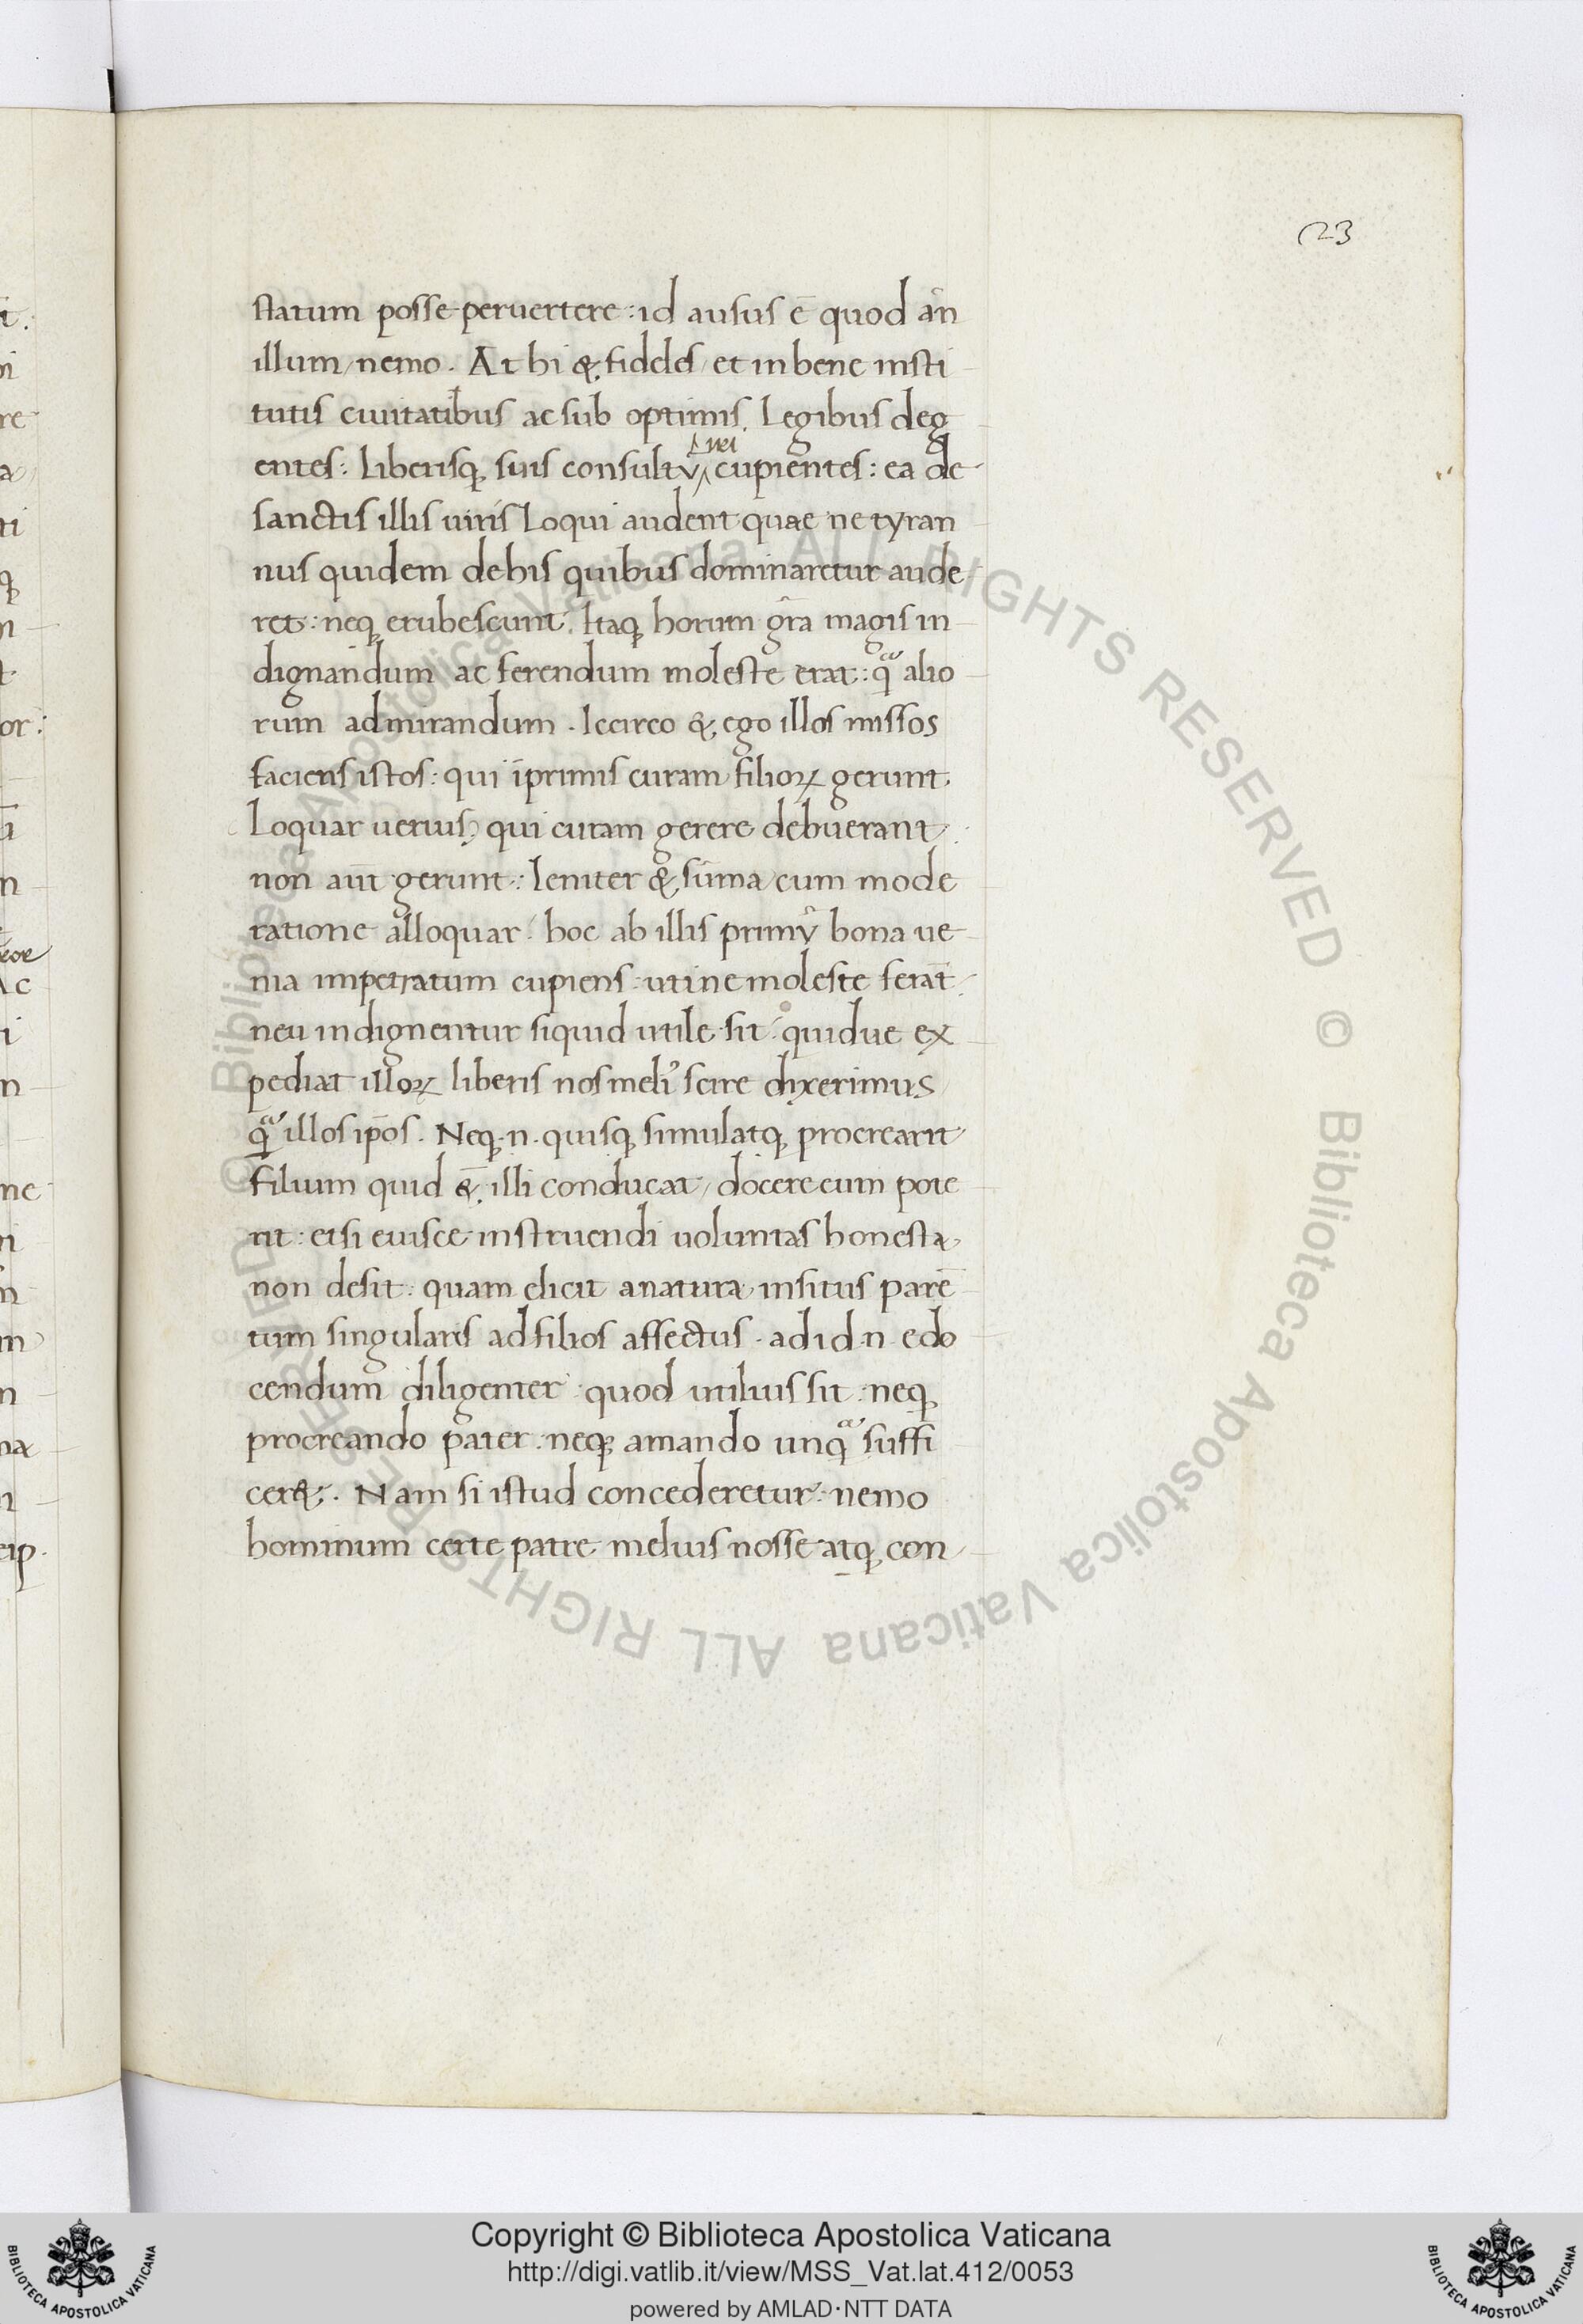 23
statum posse peruertere: id ausus ē quod an̄
illum / nemo. At hi &. fideles / et in bene insti
tutis ciuitatibus ac sub optimis. Legibus deg
entes: liberisq; suis consultū cupientes: ea de
sanctis illis uiris loqui audent quae ne tyran
nus quidem de his quibus dominaretur aude
ret: neq; erubescunt. Itaq; horum gr̄a magis in
dignandum ac ferendum moleste erat: qua alio
rum admirandum. Iccirco &. ego illos missos
faciens istos: qui īprimis curam filioꝝ gerunt.
Loquar uerius, qui curam gerere debuerant.
non aūt gerunt: leniter &. sūma cum mode
ratione alloquar. hoc ab illis primū bona ue
nia impetratum cupiens: uti ne moleste ferāt.
neu indignentur siquid utile sit. quidue ex
pediat illoꝝ liberis nos meliꝰ scire dixerimus
qua illos ip̄os. Neq;.n. quisq; simulatq; procrearit
filium quid &̄. illi conducat / docere eum pote
rit: etsi euisce instruendi uoluntas honesta
non desit: quam elicit a natura insitus parē
tum singularis ad filios affectus. ad id.n. edo
cendum diligenter quod utilius sit: neq;
procreando pater: neq; amando unqua suffi
cer&. Nam si istud concederetur: nemo
hominum certe patre melius nosse atq; con
Copyright © Biblioteca Apostolica Vaticana
http://digi.vatlib.it/view/MSS_Vat.lat.412/0053
powered by AMLAD·NTT DATA
BIBLIOTECA APOSTOLICA VATICANA
BIBLIOTECA APOSTOLICA VATICANA
© Biblioteca Apostolica Vaticana ALL RIGHTS RESERVED © Biblioteca Apostolica Vaticana ALL RIGHTS RESERVED